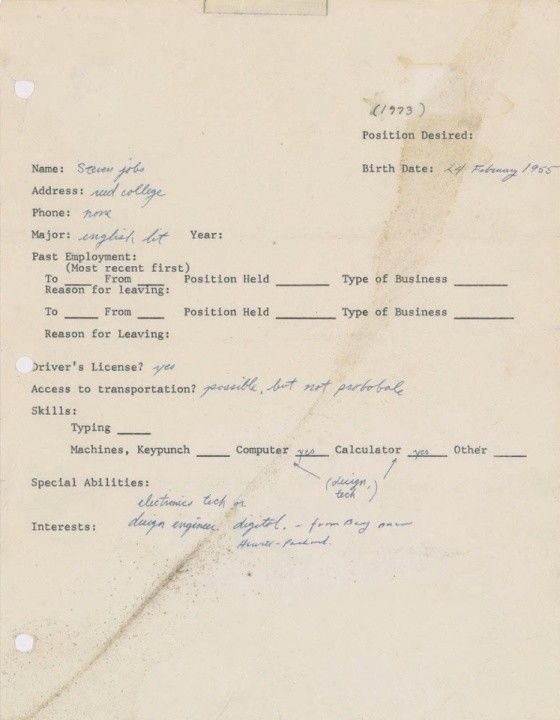 (1973)
Position Desired:
Name: Steven jobs Birth Date: 24 February 1955
Address: reed college
Phone: none
Major: english lit Year:
Past Employment:
(Most recent first)
To ____ From ____ Position Held ________ Type of Business ________
Reason for leaving:
To ____ From ____ Position Held ________ Type of Business ________
Reason for Leaving:
Driver's License? yes
Access to transportation? possible, but not probable
Skills:
Typing _____
Machines, Keypunch _____ Computer yes Calculator yes Other _____
Special Abilities: (design, tech)
electronics tech or
Interests: design engineer. digital. - from Bay
Hewitt-Packard.